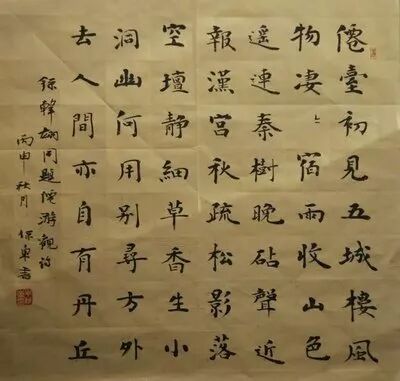 僊臺初見五城樓風
物凄〻宿雨收山色
遥連秦樹晚砧聲近
報漢宮秋疏松影落
空壇静細草香生小
洞幽何用别尋方外
去人間亦自有丹丘
錄韓翃同題仙游觀詩
丙申秋月 保東書